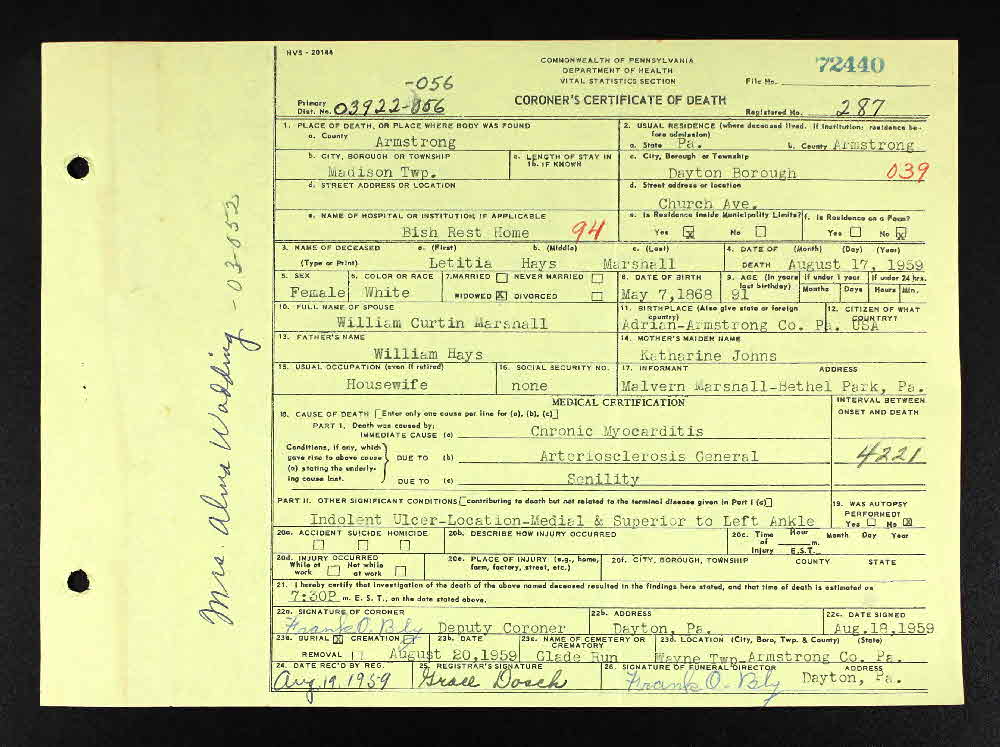 HVS - 20144
COMMONWEALTH OF PENNSYLVANIA
DEPARTMENT OF HEALTH
VITAL STATISTICS SECTION
File No. 72440
-056
Primary Dist. No. 03922-056
CORONER'S CERTIFICATE OF DEATH
Registered No. 287
1. PLACE OF DEATH, OR PLACE WHERE BODY WAS FOUND
a. County
Armstrong
b. CITY, BOROUGH OR TOWNSHIP
Madison Twp.
c. LENGTH OF STAY IN 1b. IF KNOWN
d. STREET ADDRESS OR LOCATION
e. NAME OF HOSPITAL OR INSTITUTION, IF APPLICABLE
Bish Rest Home 94
2. USUAL RESIDENCE (where deceased lived. If institution: residence before admission)
a. State Pa. b. County Armstrong
c. City, Borough or Township
Dayton Borough 039
d. Street address or location
Church Ave.
e. Is Residence Inside Municipality Limits? f. Is Residence on a Farm?
Yes X No Yes No X
3. NAME OF DECEASED a. (First) b. (Middle) c. (Last)
(Type or Print) Letitia Hays Marshall
4. DATE OF DEATH (Month) (Day) (Year)
August 17, 1959
5. SEX
Female
6. COLOR OR RACE
White
7. MARRIED NEVER MARRIED
WIDOWED X DIVORCED
8. DATE OF BIRTH
May 7,1868
9. AGE (In years last birthday) If under 1 year If under 24 hrs.
Months Days Hours Min.
91
10. FULL NAME OF SPOUSE
William Curtin Marshall
11. BIRTHPLACE (Also give state or foreign country)
Adrian-Armstrong Co. Pa.
12. CITIZEN OF WHAT COUNTRY?
USA
13. FATHER'S NAME
William Hays
14. MOTHER'S MAIDEN NAME
Katharine Johns
15. USUAL OCCUPATION (even if retired)
Housewife
16. SOCIAL SECURITY NO.
none
17. INFORMANT ADDRESS
Malvern Marshall-Bethel Park, Pa.
MEDICAL CERTIFICATION
INTERVAL BETWEEN ONSET AND DEATH
18. CAUSE OF DEATH [Enter only one cause per line for (a), (b), (c)]
PART I. Death was caused by:
IMMEDIATE CAUSE (a) Chronic Myocarditis
Conditions, if any, which gave rise to above cause (a) stating the underlying cause last.
DUE TO (b) Arteriosclerosis General
4221
DUE TO (c) Senility
PART II. OTHER SIGNIFICANT CONDITIONS [contributing to death but not related to the terminal disease given in Part I (a)]
Indolent Ulcer-Location-Medial & Superior to Left Ankle
19. WAS AUTOPSY PERFORMED?
Yes No X
20a. ACCIDENT SUICIDE HOMICIDE
20b. DESCRIBE HOW INJURY OCCURRED
20c. Time of Injury Hour m. E.S.T. Month Day Year
20d. INJURY OCCURRED
While at work Not while at work
20e. PLACE OF INJURY (e.g., home, farm, factory, street, etc.)
20f. CITY, BOROUGH, TOWNSHIP COUNTY STATE
21. I hereby certify that investigation of the death of the above named deceased resulted in the findings here stated, and that time of death is estimated as
7:30P m. E. S. T., on the date stated above.
22a. SIGNATURE OF CORONER
Frank O. Bly Deputy Coroner
22b. ADDRESS
Dayton, Pa.
22c. DATE SIGNED
Aug.18,1959
23a. BURIAL X CREMATION
REMOVAL
23b. DATE
August 20,1959
23c. NAME OF CEMETERY OR CREMATORY
Glade Run
23d. LOCATION (City, Boro, Twp. & County) (State)
Wayne Twp. Armstrong Co. Pa.
24. DATE REC'D BY REG.
Aug 19, 1959
25. REGISTRAR'S SIGNATURE
Grace Dosch
26. SIGNATURE OF FUNERAL DIRECTOR ADDRESS
Frank O. Bly Dayton, Pa.
Mrs. Alma Wadding - 03-052